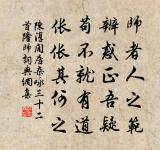 師者人之範
辨惑正吾疑
苟不就有道
倀倀其何之
陳淳閑居雜咏三十二
首隆師詞典網集